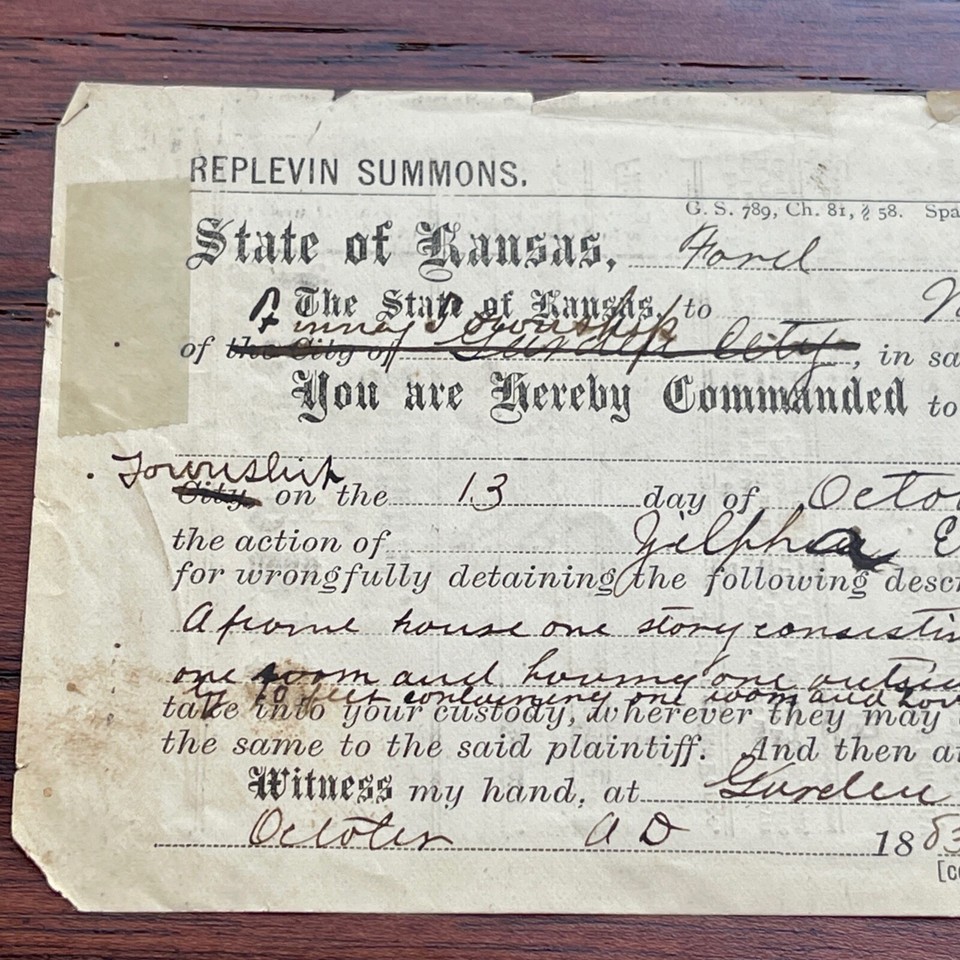 REPLEVIN SUMMONS.
G. S. 789, Ch. 81, § 58. Spa
State of Kansas, Ford
The State of Kansas, to
Township
of the City of Garden City, in sa
You are Hereby Commanded to
Township
City, on the 13 day of Octo
the action of Zilpha E
for wrongfully detaining the following descr
A frame house one story consistin
one room and having one outsid
by 10 feet containing one room and hav
take into your custody, wherever they may
the same to the said plaintiff. And then a
Witness my hand, at Garden
October A D 1883
[co